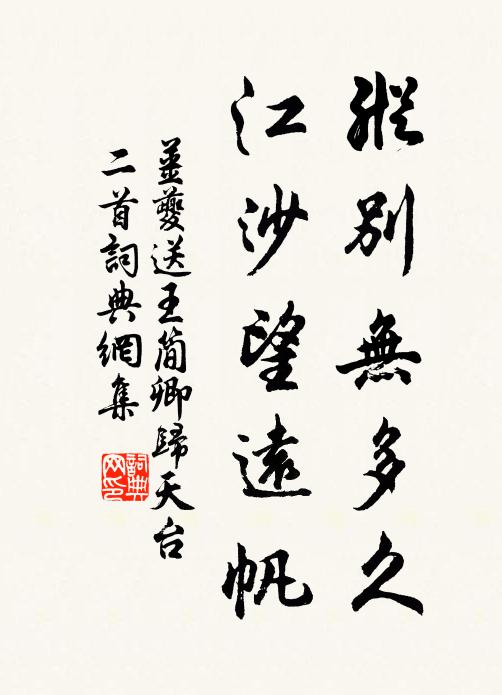 縱別無多久
江沙望遠帆
姜夔送王簡卿歸天台
二首詞典網集
詞典
网印